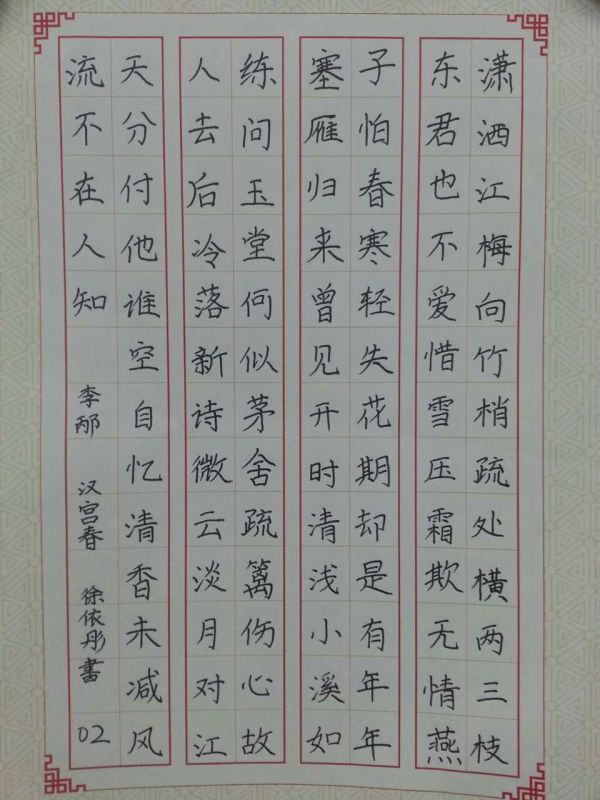 潇洒江梅向竹梢疏处横两三枝
东君也不爱惜雪压霜欺无情燕
子怕春寒轻失花期却是有年年
塞雁归来曾见开时清浅小溪如
练问玉堂何似茅舍疏篱伤心故
人去后冷落新诗微云淡月对江
天分付他谁空自忆清香未减风
流不在人知
李邴 汉宫春 徐依彤書 02